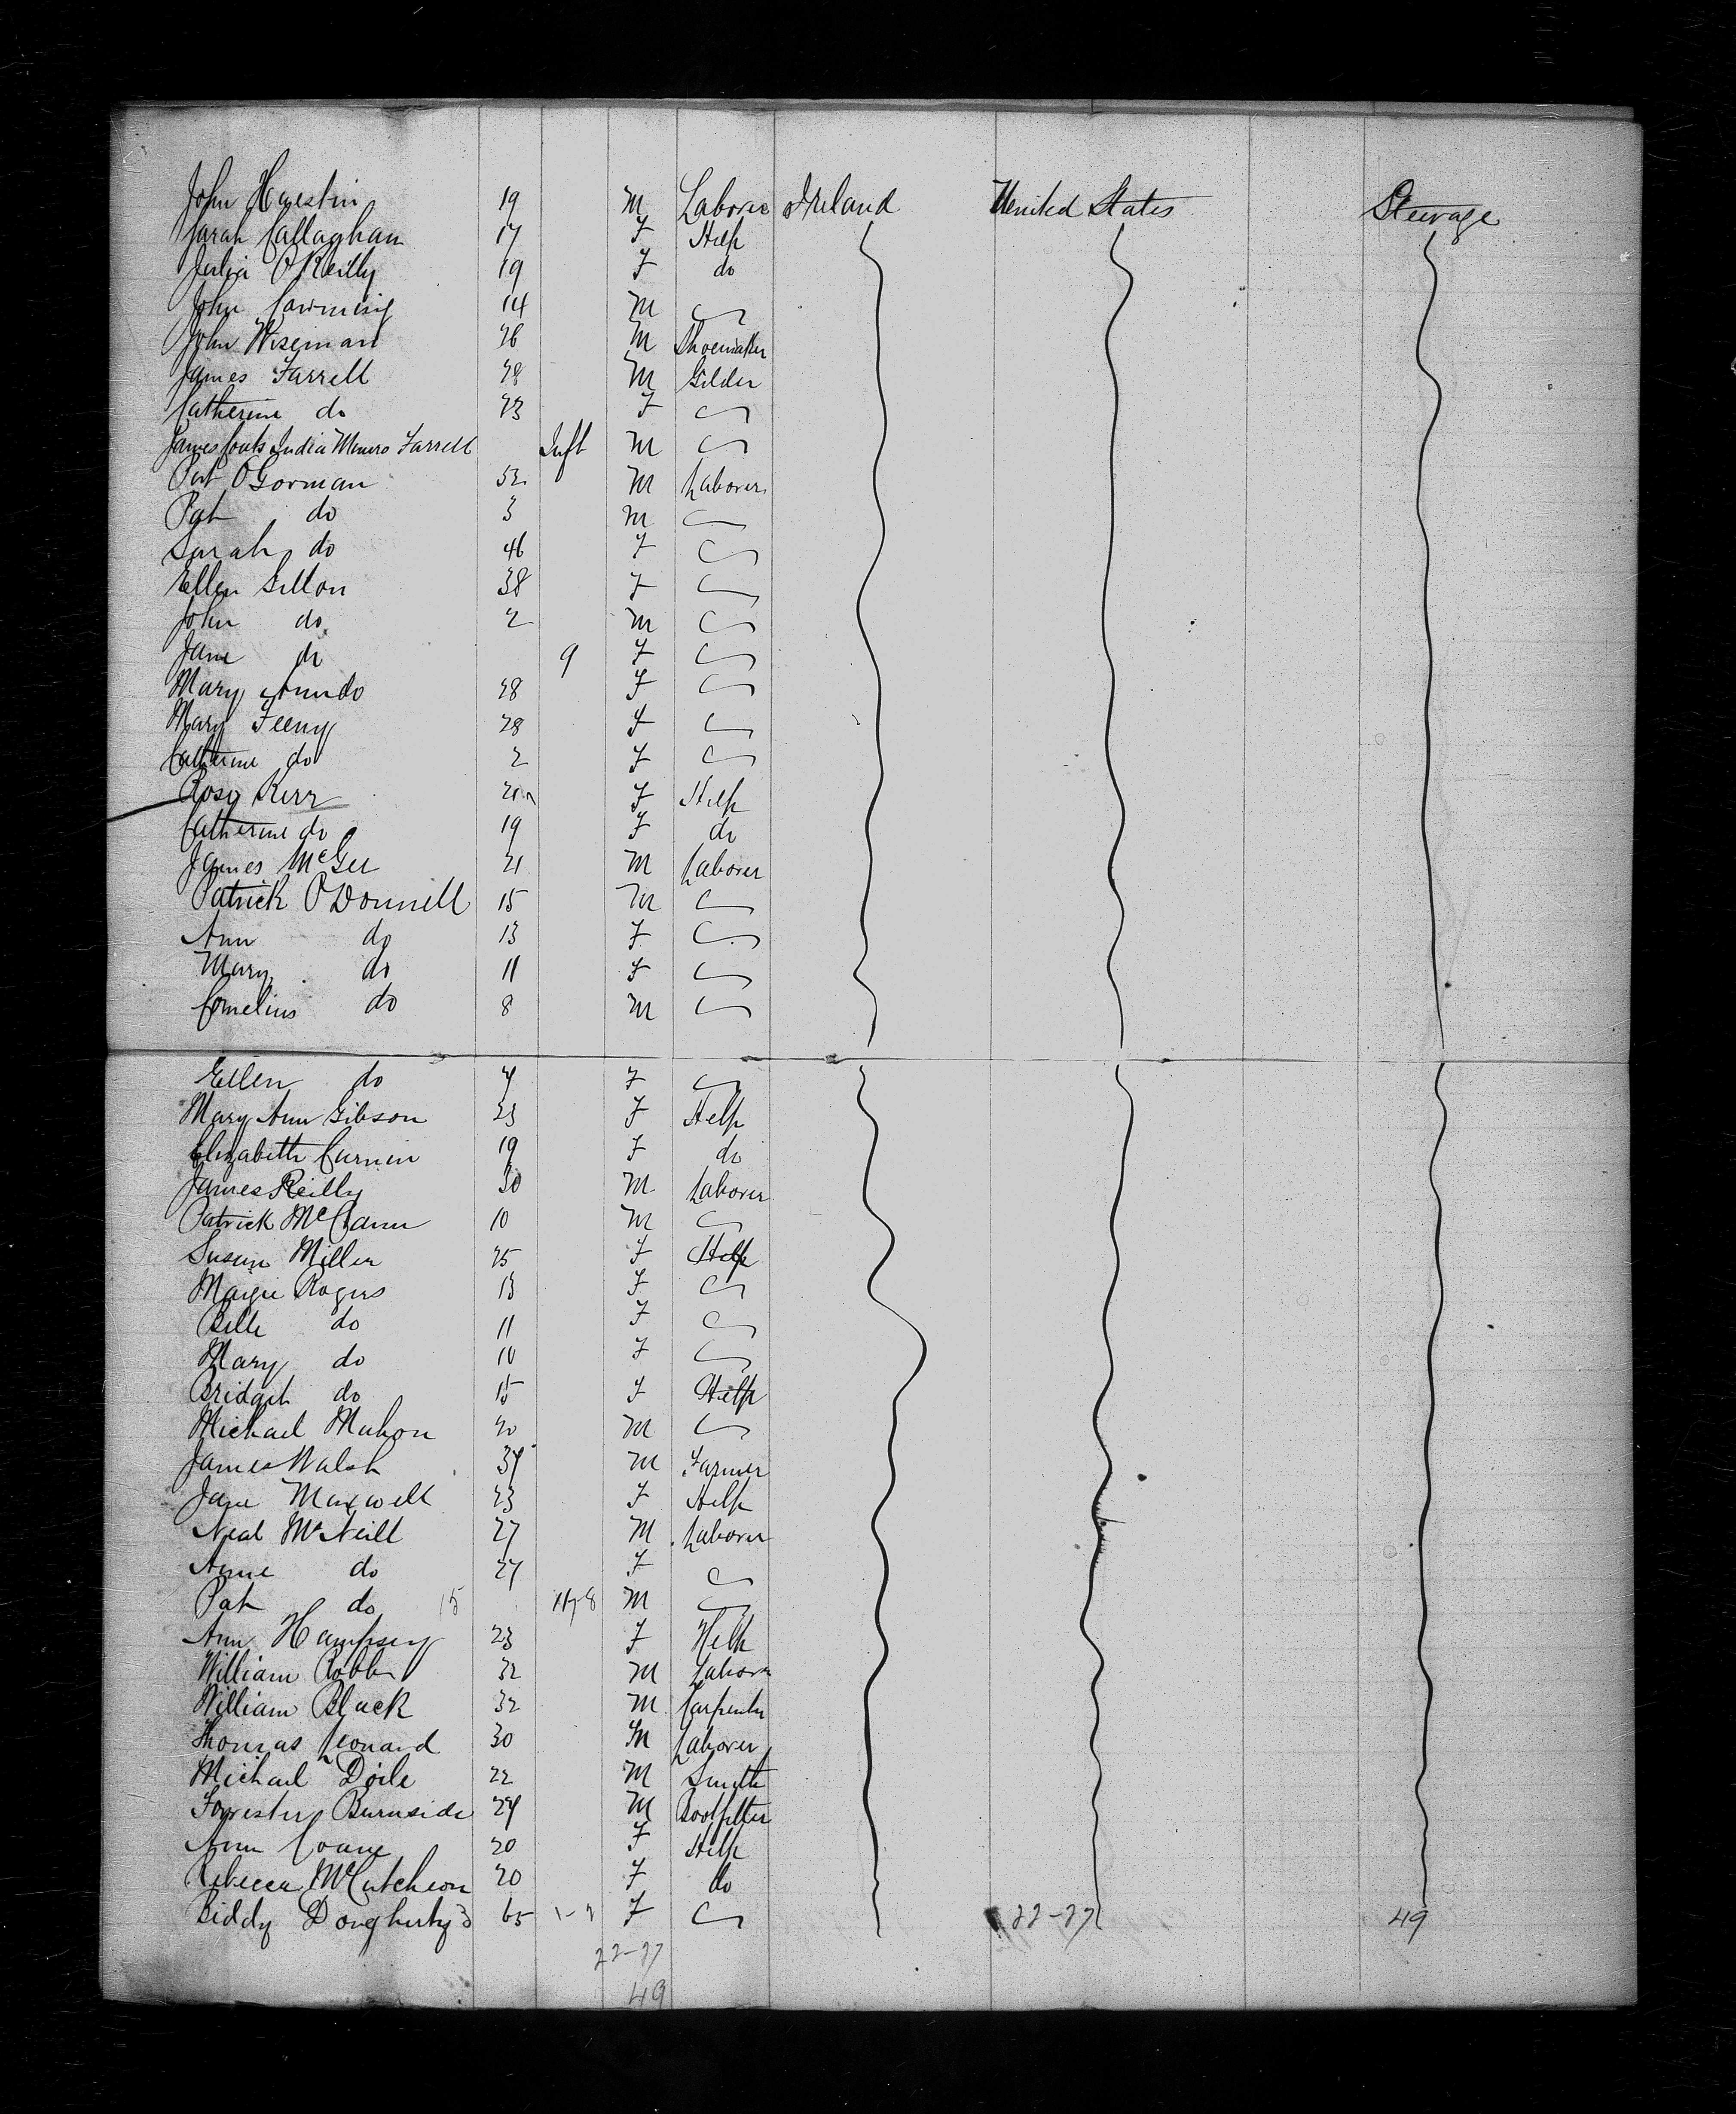 John Hanestin 19 M Laborer Ireland United States Steerage
Sarah Callaghan 17 F Help
Julia O'Reilly 19 F do
John 14 M
John Wiseman 26 M Shoemaker
James Farrell 28 M Gilder
Catherine do 23 F
James Couts India Munro Farrell Inft M
Pat O'Gorman 52 M Laborer
Pat do 3 M
Sarah do 46 F
Ellen Gillon 38 F
John do 2 M
Jane do 9 F
Mary Ann do 28 F
Mary Feeny 28 F
Catherine do 2 F
Rosy Kerr 20 F Help
Catherine do 19 F do
James McGee 21 M Laborer
Patrick O'Donnell 15 M
Ann do 13 F
Mary do 11 F
Cornelius do 8 M
Ellen do 4 F
Mary Ann Gibson 23 F Help
Elizabeth Curnin 19 F do
James Reilly 30 M Laborer
Patrick McCann 10 M
Susan Miller 25 F Help
Margie Rogers 13 F
Bella do 11 F
Mary do 10 F
Bridget do 15 F Help
Michael Mahon 20 M
James Walsh 34 M Farmer
Jane Maxwell 23 F Help
Neal McNeill 27 M Laborer
Anne do 24 F
Pat do 15 M
Ann Hampsey 23 F Help
William Robb 32 M Labor
William Black 32 M Carpenter
Thomas Leonard 30 M Laborer
Michael Doile 22 M Smith
Forrester Burnside 24 M Bootfitter
Ann Coane 20 F Help
Rebecca McCutcheon 20 F do
Biddy Dougherty 65 F 22-27 49
22-27
49